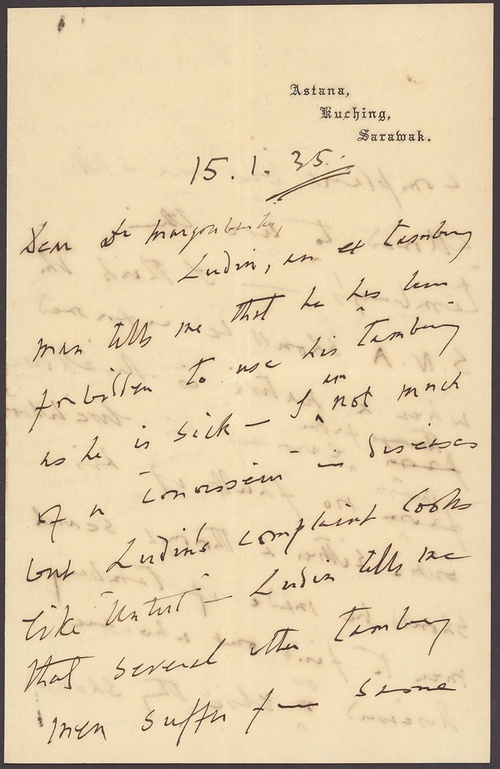 Astana,
Kuching,
Sarawak.
15.1.35.
Dear Dr
Ludin, an ex Tambuy
man tells me that he has been
forbidden to use his Tambuy
as he is sick — I am not much
of a "conoisseur" in diseases
but Ludin's complaint looks
like "Untut" — Ludin tells me
that several other Tambuy
men suffer from same